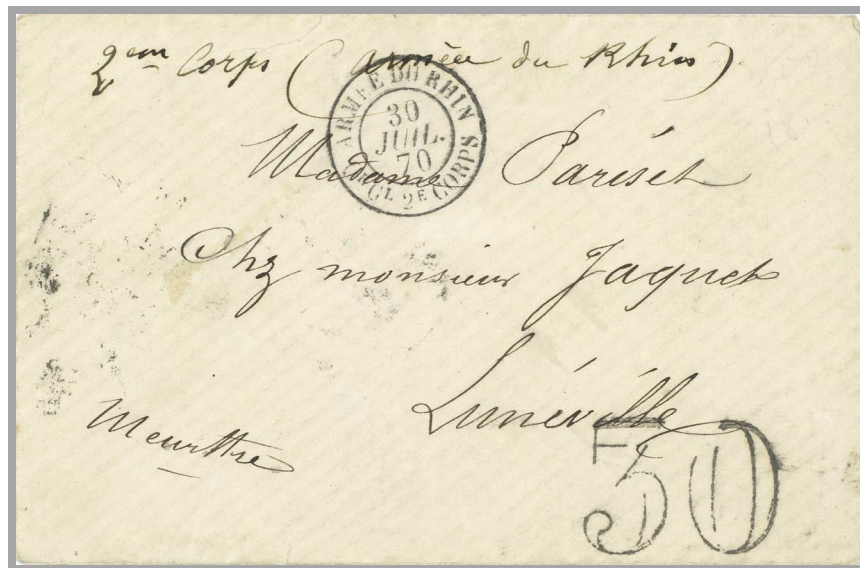 2em Corps (armée du Rhin)
ARMÉE DU RHIN
30
JUIL.
70
QR GL 2E CORPS
Madame Pariset
Chz monsieur Jaquet
Lunéville
Meurthe
30